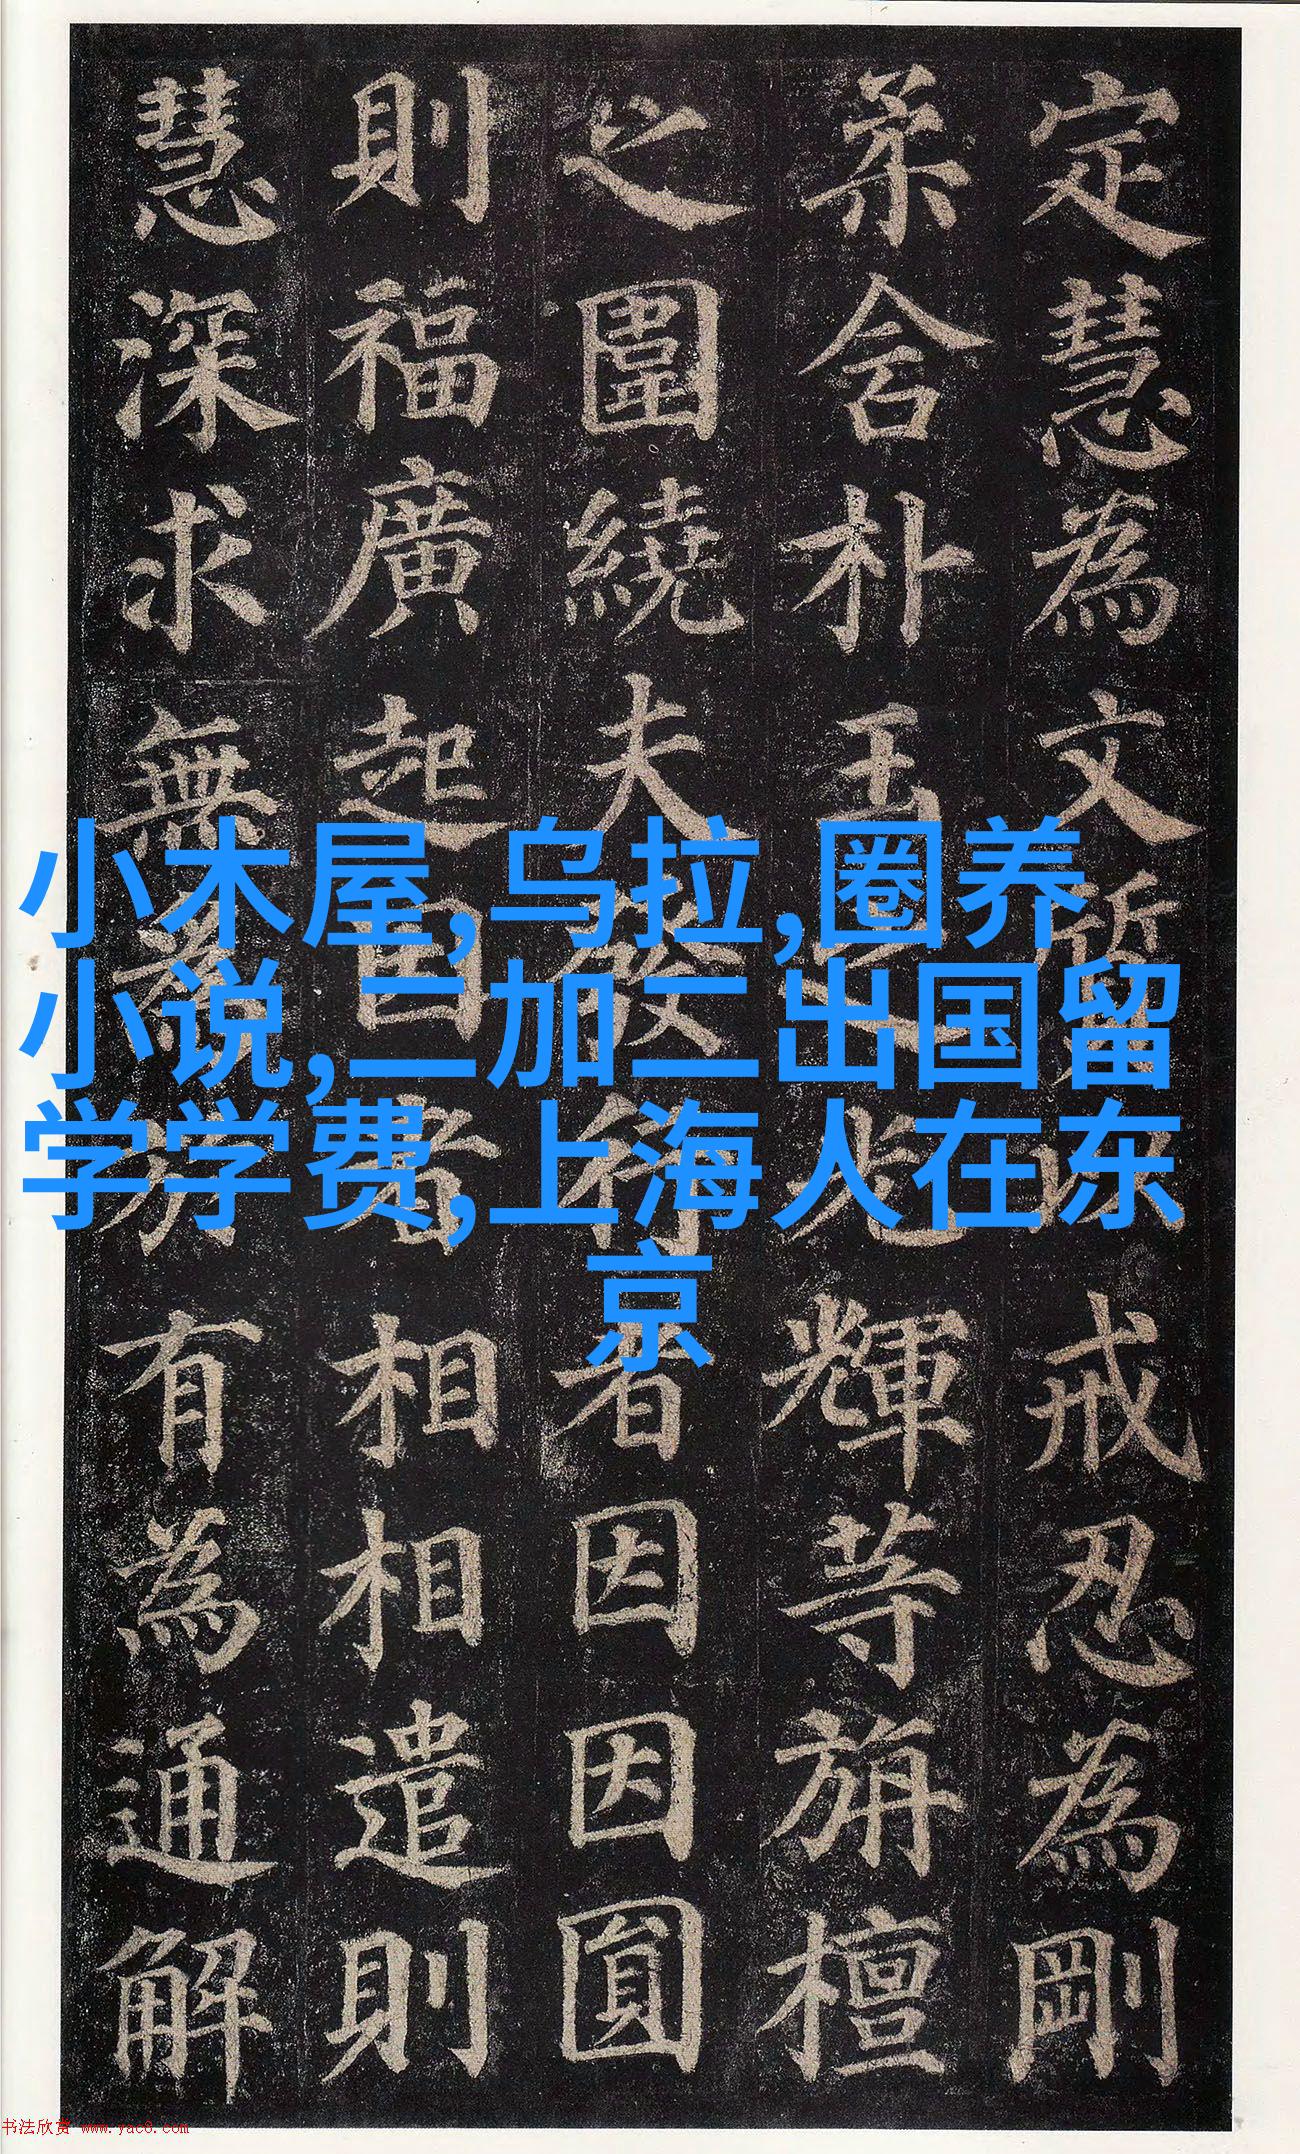 定慧為文質以戒忍為剛
柔含朴玉之光輝等旃檀
之圍繞夫發行者因因圓
則福廣起因者相相遣則
慧深求無為於有為通解
小木屋,乌拉,圈养
小说,二加二出国留
学学费,上海人在东
京
书法欣赏 www.yac8.com